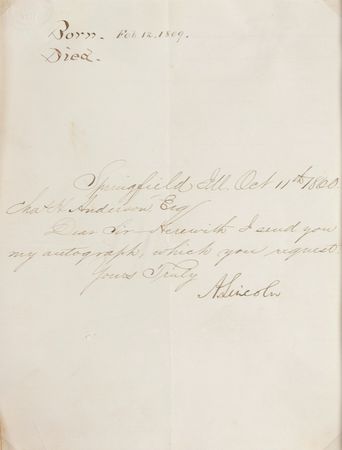 Born. Feb 12, 1809.
Died.
Springfield Ill. Oct 11th 1860.
Chas H Anderson Esq
Dear Sir Herewith I send you
my autograph, which you request.
Yours Truly
A Lincoln